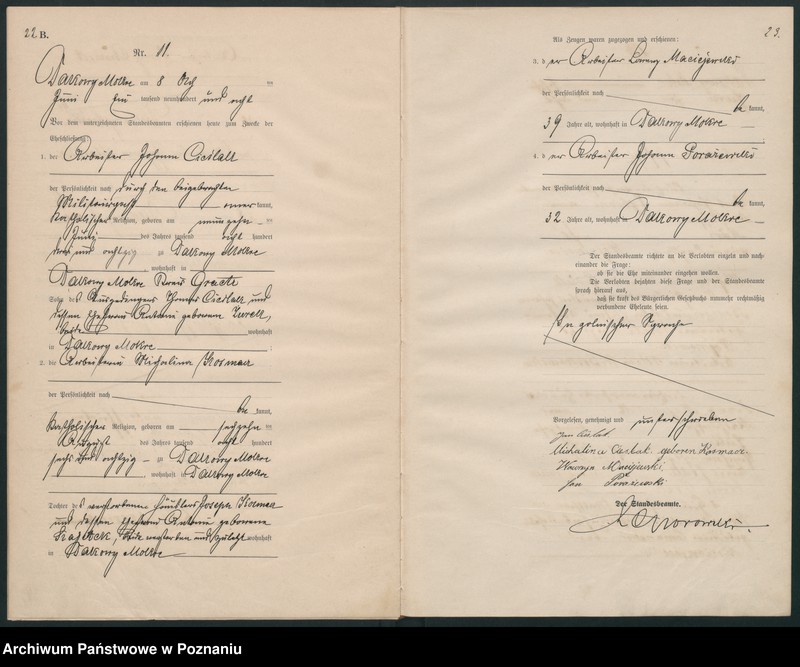 22 B.
Nr. 11.
Dalkowy Mokre am 8
Juni Ein tausend neunhundert und acht
Vor dem unterzeichneten Standesbeamten erschienen heute zum Zwecke der
Eheschließung:
1. der Arbeiter Johann
der Persönlichkeit nach durch den beigebrachten
kannt,
katholischer Religion, geboren am neunzehn
Juni des Jahres tausend acht hundert
drei und achtzig zu Dalkowy Mokre
, wohnhaft in
Dalkowy Mokre Kreis
Sohn des Ausgedingers Thomas und
dessen Ehefrau Antonie geborenen
beide wohnhaft
in Dalkowy Mokre
2. die Arbeiterin Michalina Kosmacz
der Persönlichkeit nach
be kannt,
katholischer Religion, geboren am sechzehn
August des Jahres tausend acht hundert
sechs und achtzig zu Dalkowy Mokre
, wohnhaft in Dalkowy Mokre
Tochter des verstorbenen Häuslers Joseph Kosmacz
und dessen Ehefrau Antonie geborene
, beide verstorben und zuletzt wohnhaft
in Dalkowy Mokre
23.
Als Zeugen waren zugezogen und erschienen:
3. der Arbeiter Maciejewski
der Persönlichkeit nach
be kannt,
39 Jahre alt, wohnhaft in Dalkowy Mokre
4. der Arbeiter Johann
der Persönlichkeit nach
be kannt,
32 Jahre alt, wohnhaft in Dalkowy Mokre
Der Standesbeamte richtete an die Verlobten einzeln und nach-
einander die Frage:
ob sie die Ehe miteinander eingehen wollen.
Die Verlobten bejahten diese Frage und der Standesbeamte
sprach hierauf aus,
daß sie kraft des Bürgerlichen Gesetzbuchs nunmehr rechtmäßig
verbundene Eheleute seien.
In polnischer Sprache
Vorgelesen, genehmigt und unterschrieben
Jan
Michalina geboren Kosmacz
Maciejewski
Jan
Der Standesbeamte.
Archiwum Państwowe w Poznaniu